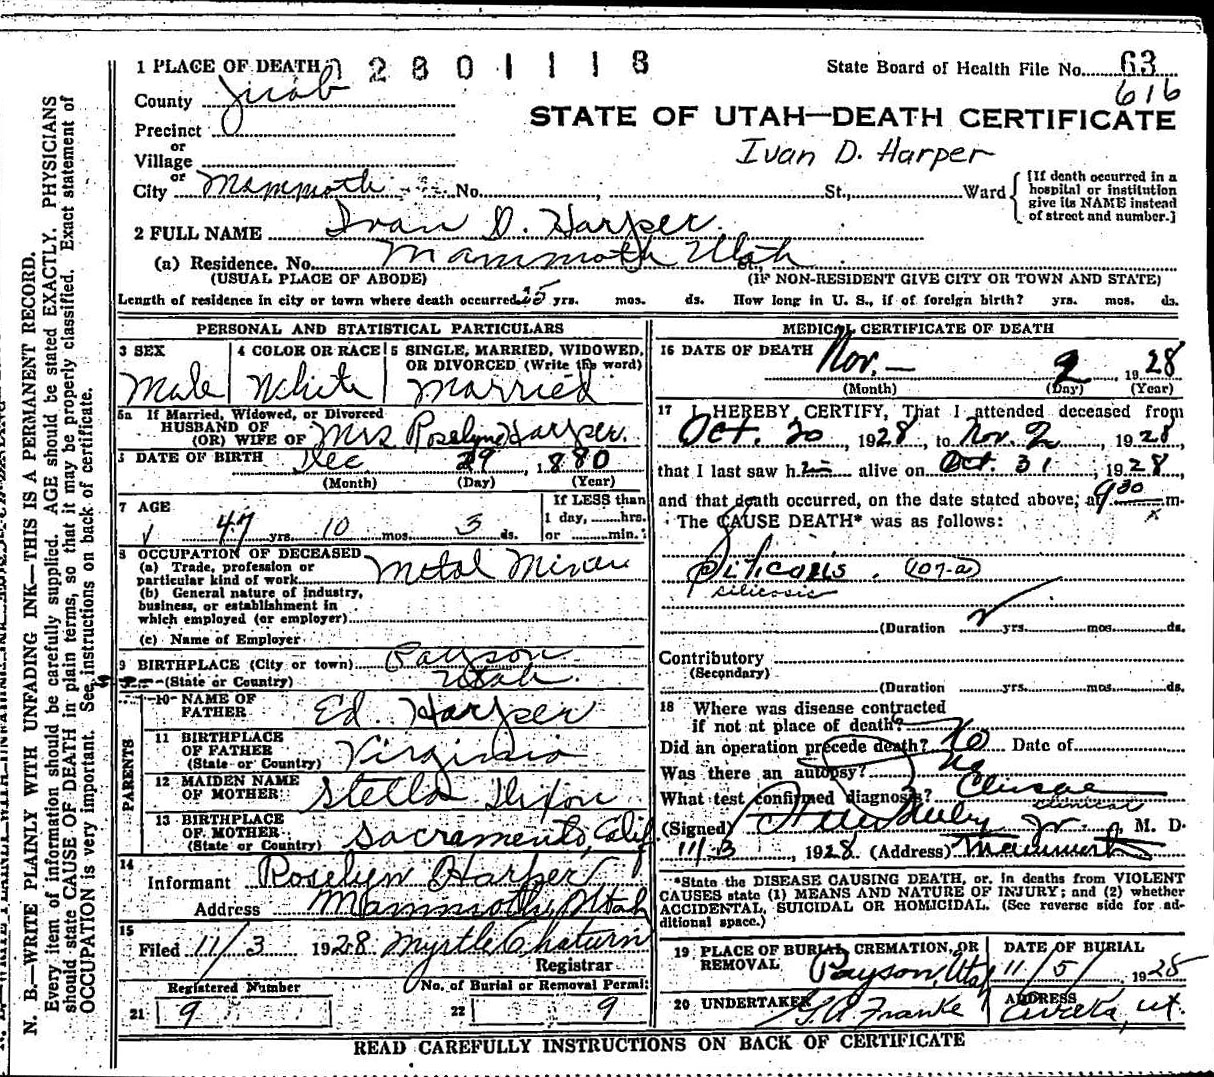 1 PLACE OF DEATH 2801118 State Board of Health File No. 63
616
County Juab
STATE OF UTAH—DEATH CERTIFICATE
Precinct
or
Village
Ivan D. Harper
or
City Mammoth No. St., Ward
[If death occurred in a hospital or institution give its NAME instead of street and number.]
2 FULL NAME Ivan D. Harper
(a) Residence. No. Mammoth Utah St.,
(USUAL PLACE OF ABODE) (IF NON-RESIDENT GIVE CITY OR TOWN AND STATE)
Length of residence in city or town where death occurred 25 yrs. mos. ds. How long in U. S., if of foreign birth? yrs. mos. ds.
PERSONAL AND STATISTICAL PARTICULARS
3 SEX Male
4 COLOR OR RACE White
5 SINGLE, MARRIED, WIDOWED, OR DIVORCED (Write the word) Married
5a If Married, Widowed, or Divorced
HUSBAND OF
(OR) WIFE OF Mrs Roselyn Harper.
DATE OF BIRTH Dec 29, 1880
(Month) (Day) (Year)
7 AGE 47 yrs. 10 mos. 3 ds.
If LESS than
1 day, hrs.
or min.
8 OCCUPATION OF DECEASED
(a) Trade, profession or
particular kind of work Metal Miner
(b) General nature of industry,
business, or establishment in
which employed (or employer)
(c) Name of Employer
9 BIRTHPLACE (City or town) Payson
(State or Country) Utah.
PARENTS
10 NAME OF
FATHER Ed. Harper
11 BIRTHPLACE
OF FATHER
(State or Country) Virginia
12 MAIDEN NAME
OF MOTHER Stella Dixon
13 BIRTHPLACE
OF MOTHER
(State or Country) Sacramento, Calif
14
Informant Roselyn Harper
Address Mammoth, Utah
15
Filed 11/3 1928 Myrtle
Registrar
Registered Number No. of Burial or Removal Permit
21 9 22 9
MEDICAL CERTIFICATE OF DEATH
16 DATE OF DEATH Nov. 2, 1928
(Month) (Day) (Year)
17 I HEREBY CERTIFY, That I attended deceased from
Oct. 20, 1928, to Nov. 2, 1928,
that I last saw him alive on Oct. 31, 1928,
and that death occurred, on the date stated above, at 9 30 m.
The CAUSE DEATH* was as follows:
Siliconis. (107-a)
silicosis
(Duration yrs. mos. ds.
Contributory
(Secondary)
(Duration yrs. mos. ds.
18 Where was disease contracted
if not at place of death?
Did an operation precede death? No Date of
Was there an autopsy? No
What test confirmed diagnosis?
clinical
(Signed) Jr., M. D.
11/3, 1928, (Address) Mammoth
*State the DISEASE CAUSING DEATH, or, in deaths from VIOLENT
CAUSES state (1) MEANS AND NATURE OF INJURY; and (2) whether
ACCIDENTAL, SUICIDAL OR HOMICIDAL. (See reverse side for ad-
ditional space.)
19 PLACE OF BURIAL, CREMATION, OR
REMOVAL Payson, Utah
DATE OF BURIAL
11/5/ 1928
20 UNDERTAKER G. A. Franke
ADDRESS
Eureka, Ut.
READ CAREFULLY INSTRUCTIONS ON BACK OF CERTIFICATE
N. B.—WRITE PLAINLY WITH UNFADING INK—THIS IS A PERMANENT RECORD.
Every item of information should be carefully supplied. AGE should be stated EXACTLY. PHYSICIANS
should state CAUSE OF DEATH in plain terms, so that it may be properly classified. Exact statement of
OCCUPATION is very important. See instructions on back of certificate.